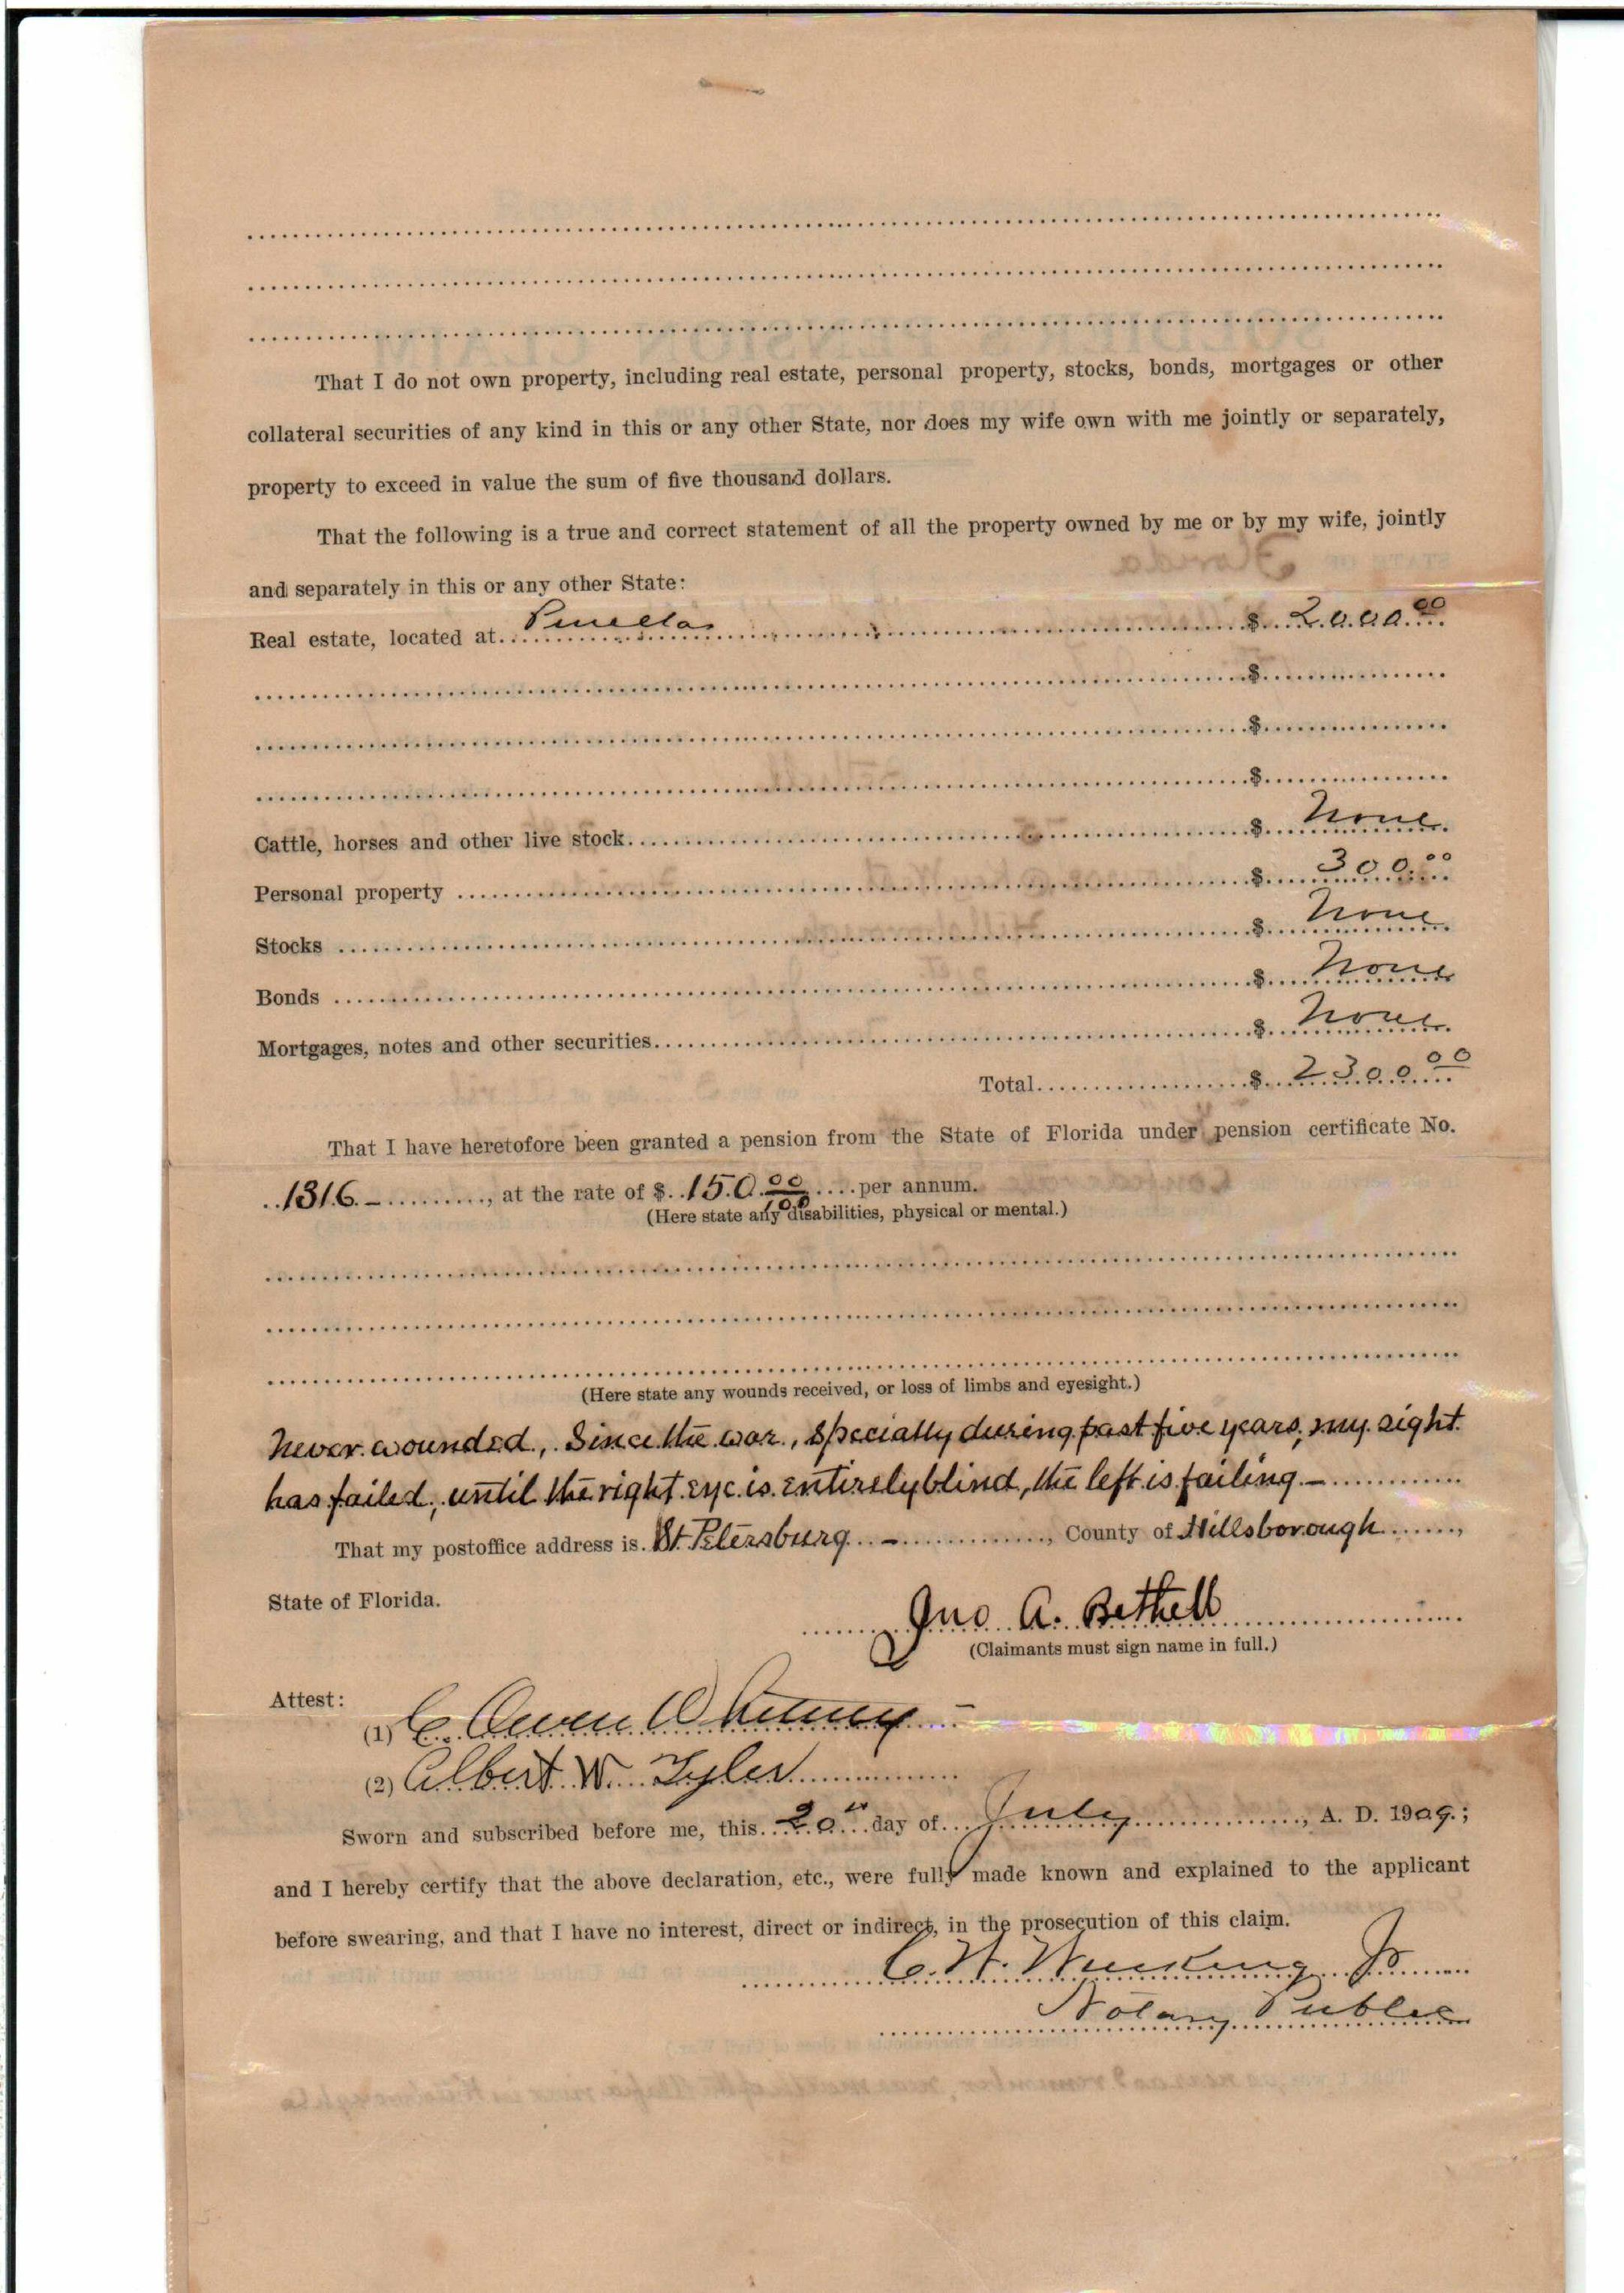 That I do not own property, including real estate, personal property, stocks, bonds, mortgages or other
collateral securities of any kind in this or any other State, nor does my wife own with me jointly or separately,
property to exceed in value the sum of five thousand dollars.
That the following is a true and correct statement of all the property owned by me or by my wife, jointly
and separately in this or any other State:
Real estate, located at Pinellas $ 2000.00
$
$
$
Cattle, horses and other live stock $ None
Personal property $ 300.00
Stocks $ None
Bonds $ None
Mortgages, notes and other securities $ None
Total $ 2300.00
That I have heretofore been granted a pension from the State of Florida under pension certificate No.
1316 –, at the rate of $ 150 00/100 per annum.
(Here state any disabilities, physical or mental.)
(Here state any wounds received, or loss of limbs and eyesight.)
Never wounded, Since the war, specially during past five years, my sight
has failed, until the right eye is entirely blind, the left is failing –
That my postoffice address is St. Petersburg –, County of Hillsborough,
State of Florida.
Jno A. Bethell
(Claimants must sign name in full.)
Attest:
(1) C. Owen Whitney –
(2) Albert W. Tyler
Sworn and subscribed before me, this 20th day of July, A. D. 1909.;
and I hereby certify that the above declaration, etc., were fully made known and explained to the applicant
before swearing, and that I have no interest, direct or indirect, in the prosecution of this claim.
C. W. Jr
Notary Public